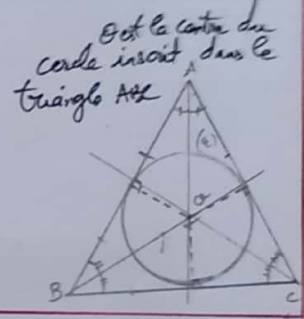 O est le centre du
cercle inscrit dans le
triángle ABC
A
(C)
O
B
C